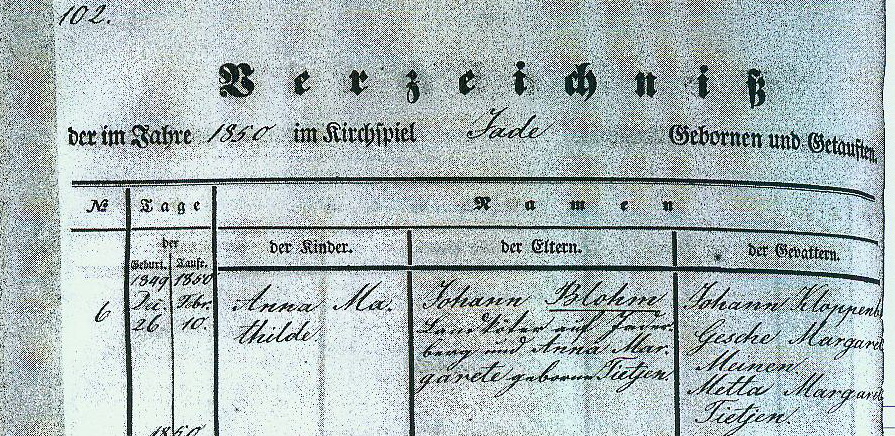 102.
Verzeichniß
der im Jahre 1850 im Kirchspiel Jade Gebornen und Getauften.
№ Tage Namen
der der Kinder. der Eltern. der Gevattern.
Geburt. Taufe.
1849 1850
6 Dec. Febr. Anna Ma- Johann Blohm Johann Kloppenb
26 10. thilde Landköter auf Jader- Gesche Margaret
berg und Anna Mar- Meinen
garete geboren Tietjen. Metta Margaret
Tietjen.
1850